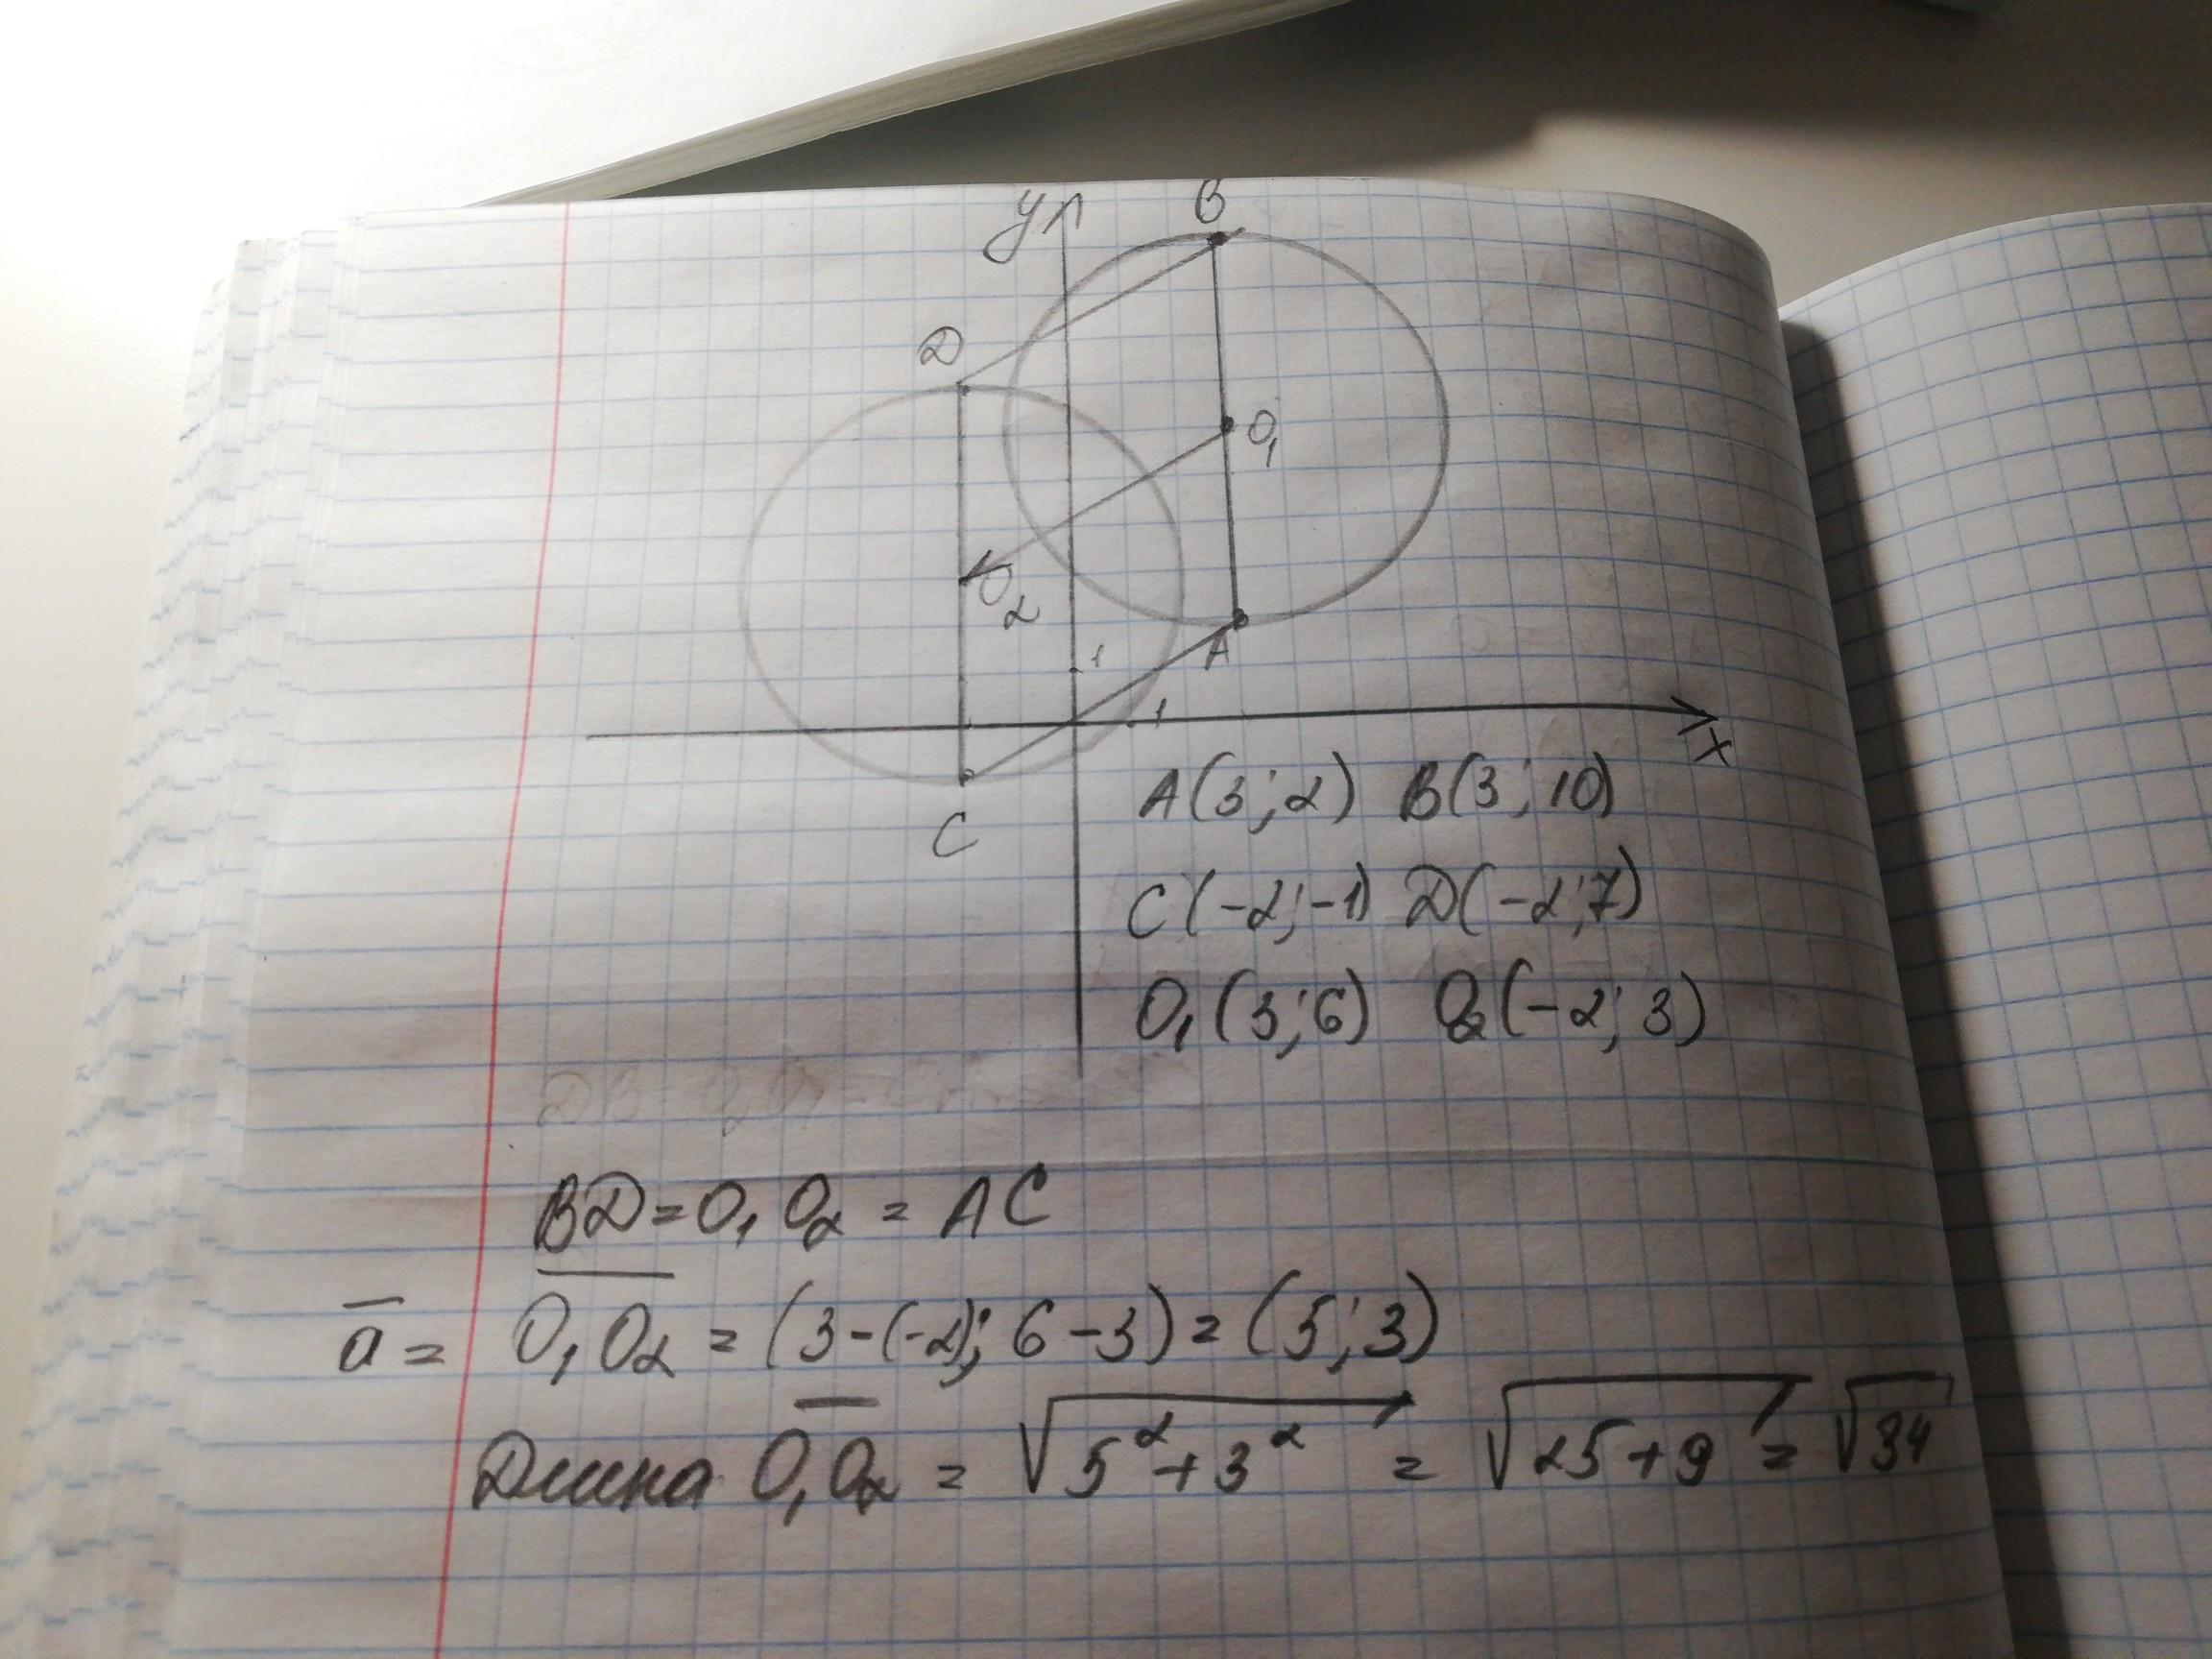 y B
D
O₁
O₂
A
1
1
x
C
A(3;2) B(3;10)
C(-2;-1) D(-2;7)
O₁(3;6) O₂(-2;3)
BD=O₁O₂=AC
a̅ = O₁O₂ = (3-(-2); 6-3) = (5;3)
Длина O₁O₂ = √5²+3² = √25+9 = √34